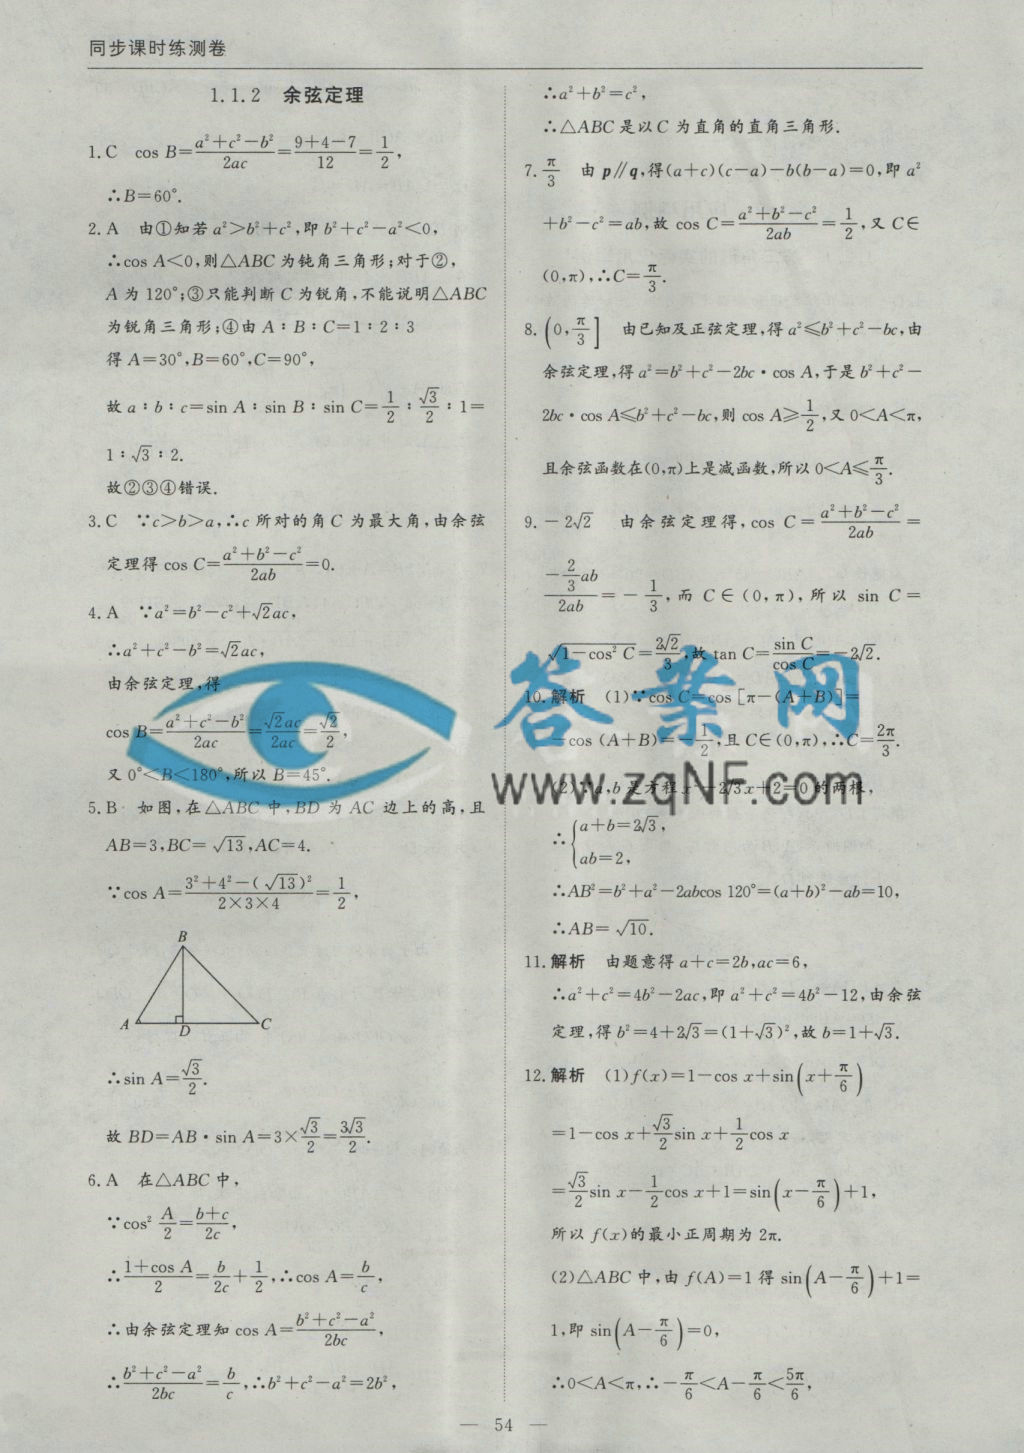 同步课时练测卷
1.1.2 余弦定理
1.C cos B=\frac{a²+c²-b²}{2ac}=\frac{9+4-7}{12}=\frac{1}{2},
∴B=60°.
2.A 由①知若a²>b²+c²,即b²+c²-a²<0,
∴cos A<0,则△ABC为钝角三角形;对于②,
A为120°;③只能判断C为锐角,不能说明△ABC
为锐角三角形;④由A∶B∶C=1∶2∶3
得A=30°,B=60°,C=90°,
故a∶b∶c=sin A∶sin B∶sin C=\frac{1}{2}∶\frac{√3}{2}∶1=
1∶√3∶2.
故②③④错误.
3.C ∵c>b>a,∴c所对的角C为最大角,由余弦
定理得cos C=\frac{a²+b²-c²}{2ab}=0.
4.A ∵a²=b²-c²+√2ac,
∴a²+c²-b²=√2ac,
由余弦定理,得
cos B=\frac{a²+c²-b²}{2ac}=\frac{√2ac}{2ac}=\frac{√2}{2},
又0°<B<180°,所以B=45°.
5.B 如图,在△ABC中,BD为AC边上的高,且
AB=3,BC=√13,AC=4.
∵cos A=\frac{3²+4²-(√13)²}{2×3×4}=\frac{1}{2},
B
A D C
∴sin A=\frac{√3}{2}.
故BD=AB·sin A=3×\frac{√3}{2}=\frac{3√3}{2}.
6.A 在△ABC中,
∵cos²\frac{A}{2}=\frac{b+c}{2c},
∴\frac{1+cos A}{2}=\frac{b}{2c}+\frac{1}{2},∴cos A=\frac{b}{c},
∴由余弦定理知cos A=\frac{b²+c²-a²}{2bc},
∴\frac{b²+c²-a²}{2bc}=\frac{b}{c},∴b²+c²-a²=2b²,
∴a²+b²=c²,
∴△ABC是以C为直角的直角三角形.
7.\frac{π}{3} 由p∥q,得(a+c)(c-a)-b(b-a)=0,即a²
+b²-c²=ab,故cos C=\frac{a²+b²-c²}{2ab}=\frac{1}{2},又C∈
(0,π),∴C=\frac{π}{3}.
8.(0,\frac{π}{3}] 由已知及正弦定理,得a²≤b²+c²-bc,由
余弦定理,得a²=b²+c²-2bc·cos A,于是b²+c²-
2bc·cos A≤b²+c²-bc,则cos A≥\frac{1}{2},又0<A<π,
且余弦函数在(0,π)上是减函数,所以0<A≤\frac{π}{3}.
9.-2√2 由余弦定理得,cos C=\frac{a²+b²-c²}{2ab}=
\frac{-\frac{2}{3}ab}{2ab}=-\frac{1}{3},而C∈(0,π),所以sin C=
√(1-cos²C)=\frac{2√2}{3},故tan C=\frac{sin C}{cos C}=-2√2.
10.解析 (1)∵cos C=cos[π-(A+B)]=
-cos(A+B)=-\frac{1}{2},且C∈(0,π),∴C=\frac{2π}{3}.
(2)∵a,b是方程x²-2√3x+2=0的两根,
∴{a+b=2√3,
ab=2,
∴AB²=b²+a²-2abcos 120°=(a+b)²-ab=10,
∴AB=√10.
11.解析 由题意得a+c=2b,ac=6,
∴a²+c²=4b²-2ac,即a²+c²=4b²-12,由余弦
定理,得b²=4+2√3=(1+√3)²,故b=1+√3.
12.解析 (1)f(x)=1-cos x+sin(x+\frac{π}{6})
=1-cos x+\frac{√3}{2}sin x+\frac{1}{2}cos x
=\frac{√3}{2}sin x-\frac{1}{2}cos x+1=sin(x-\frac{π}{6})+1,
所以f(x)的最小正周期为2π.
(2)△ABC中,由f(A)=1得sin(A-\frac{π}{6})+1=
1,即sin(A-\frac{π}{6})=0,
∵0<A<π,∴-\frac{π}{6}<A-\frac{π}{6}<\frac{5π}{6},
— 54 —
答案网
www.zqNF.com